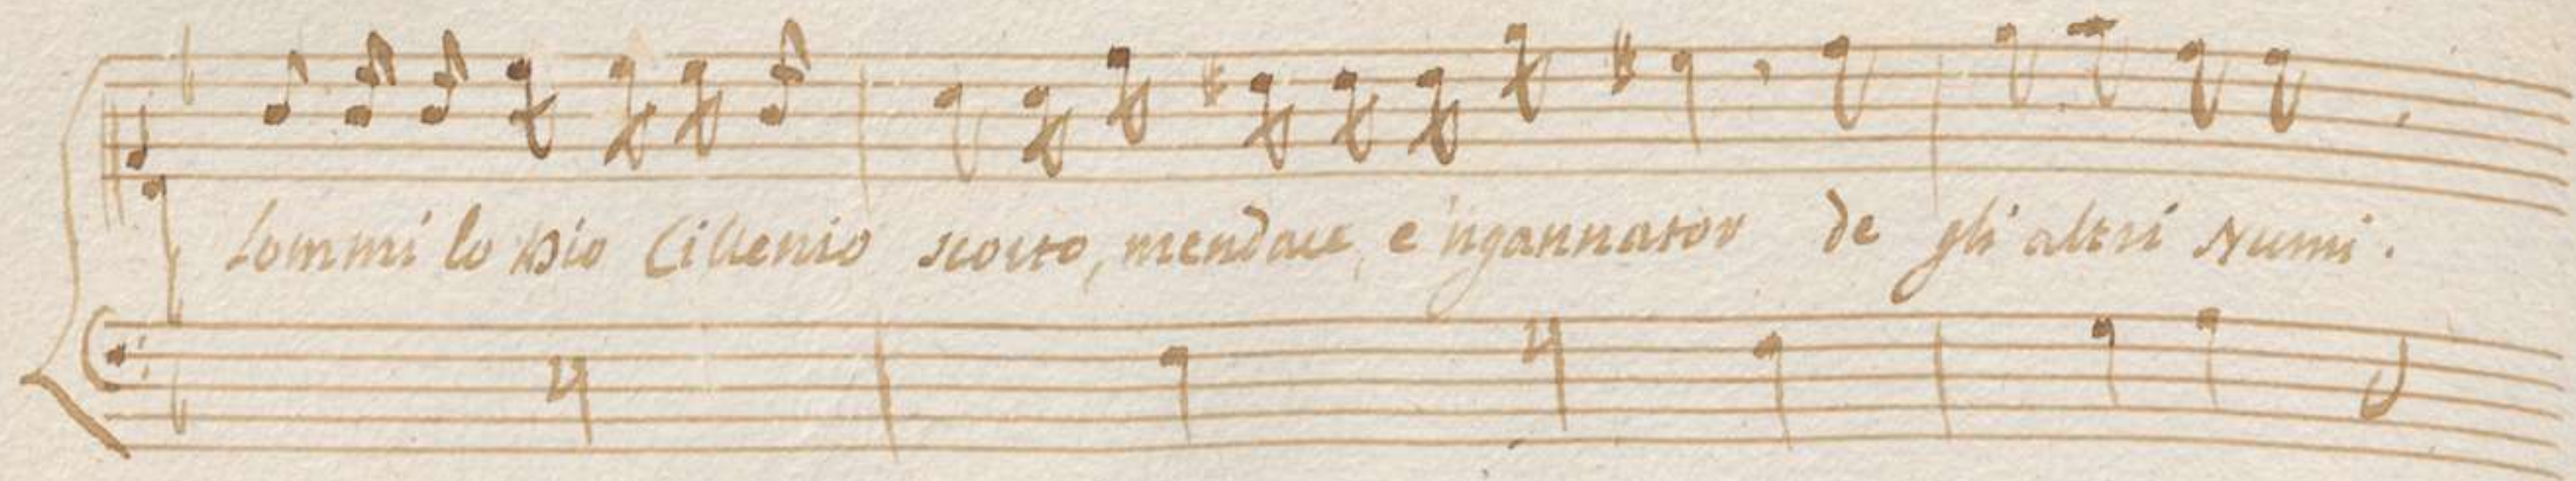 sommi lo Dio Cillenio scorto, mendace, e 'ngannator de gli altri Numi.